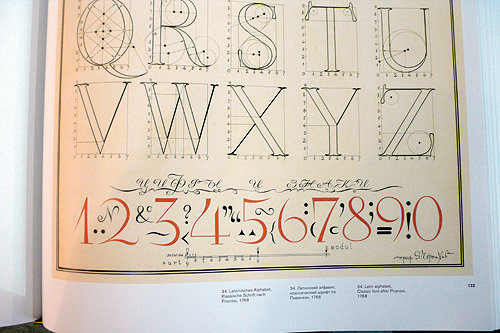 Q R S T U
V W X Y Z
ЦИФРЫ И ЗНАКИ
1 2 3 4 5 6 7 8 9 0
modul
part
34. Lateinisches Alphabet,
Klassische Schrift nach
Piranesi, 1768
34. Латинский алфавит,
классический шрифт по
Пиранези, 1768
34. Latin alphabet,
Classic font after Piranesi,
1768
133